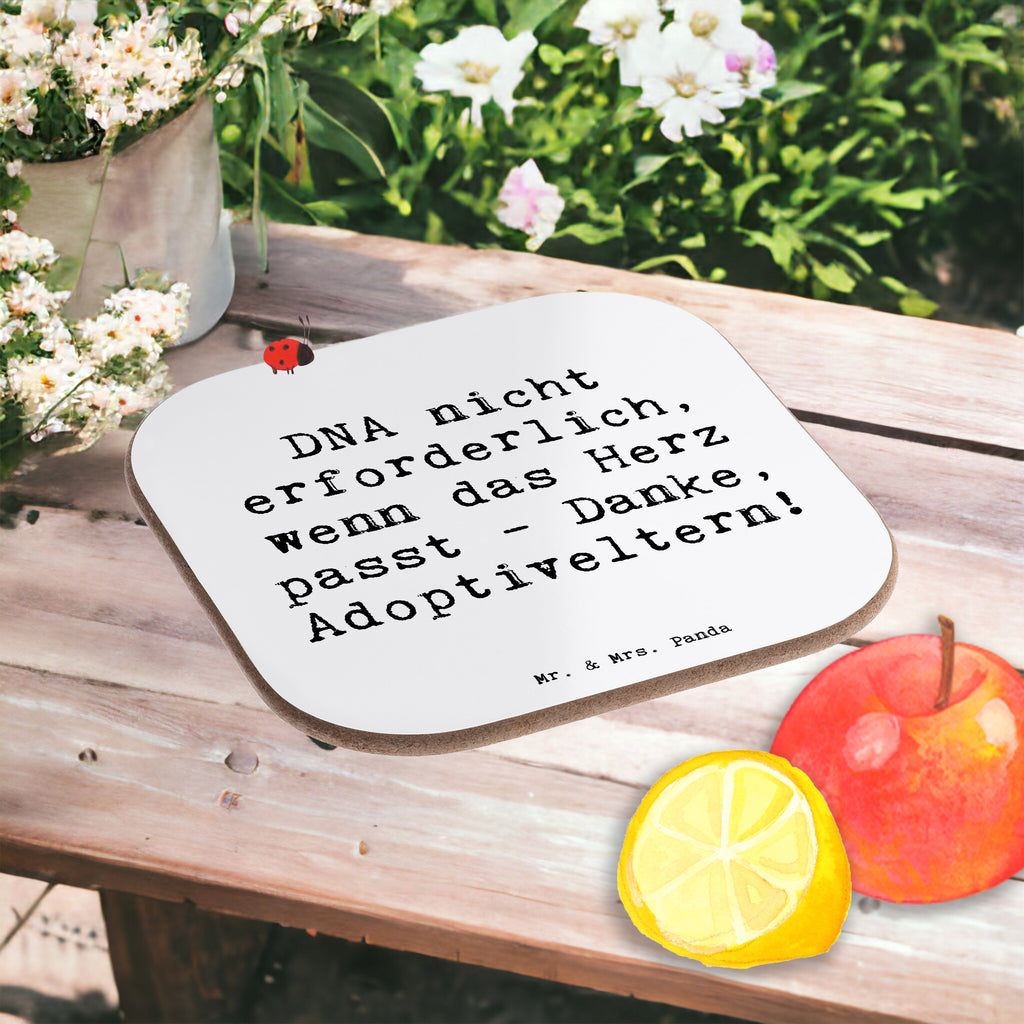 DNA nicht
erforderlich,
wenn das Herz
passt - Danke,
Adoptiveltern!
Mr. & Mrs. Panda